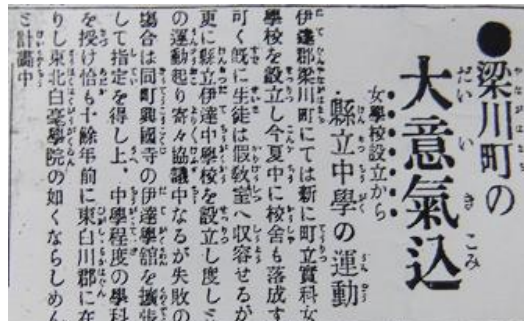 ●梁川町の
大意氣込
女學校設立から
縣立中學の運動
伊達郡梁川町にては新に町立實科女
學校を設立し今夏中に校舍も落成す
可く既に生徒は假敎室へ收容せるが
更に縣立伊達中學校を設立し度しと
の運動起り寄々協議中なるが失敗の
塲合は同町興國寺の伊達學館を擴張
して指定を得し上、中學程度の學科
を授け恰も十餘年前に東白川郡に在
りし東北白毫學院の如くならしめん
と計畫中